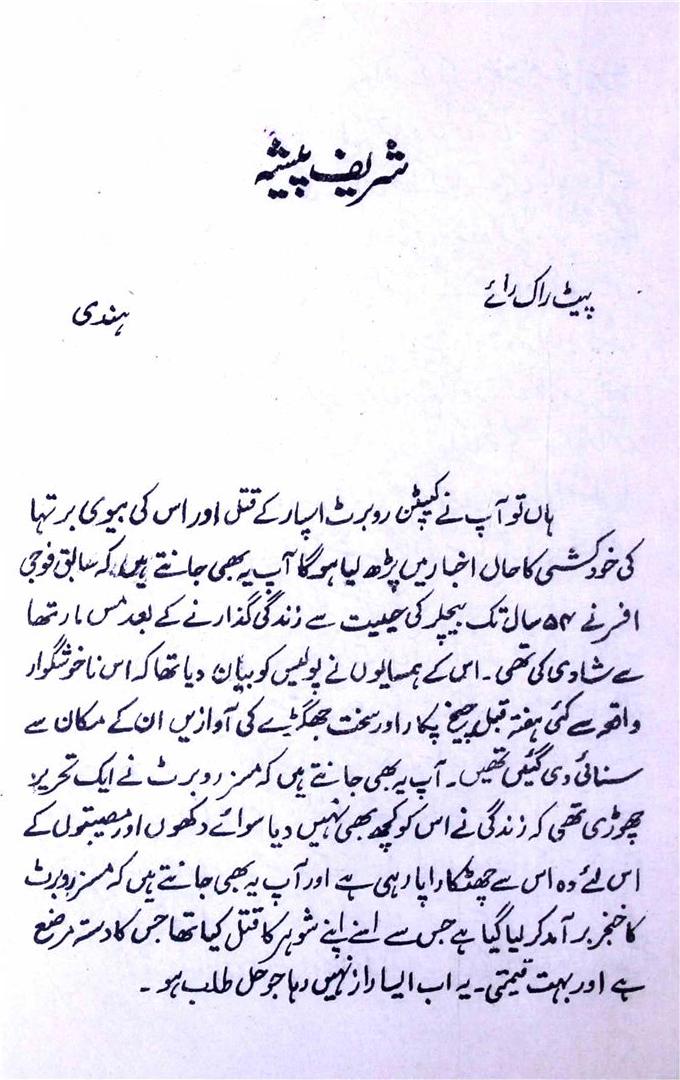 شریف پیشہ
پیٹ راک رائے
ہندی
ہاں تو آپ نے کیپٹن روبرٹ اسپار کے قتل اور اس کی بیوی برتہا
کی خودکشی کا حال اخبار میں پڑھ لیا ہوگا آپ یہ بھی جانتے ہیں کہ سابق فوجی
افسر نے ۵۴ سال تک بیچلر کی حیثیت سے زندگی گذارنے کے بعد مس بارتھا
سے شادی کی تھی۔ اس کے ہمسایوں نے پولیس کو بیان دیا تھا کہ اس ناخوشگوار
واقعہ سے کئی ہفتہ قبل چیخ پکار اور سخت جھگڑے کی آوازیں ان کے مکان سے
سنائی دی گئیں تھیں۔ آپ یہ بھی جانتے ہیں کہ مسز روبرٹ نے ایک تحریر
چھوڑی تھی کہ زندگی نے اس کو کچھ بھی نہیں دیا سوائے دکھوں اور مصیبتوں کے
اس لئے وہ اس سے چھٹکارا پا رہی ہے اور آپ یہ بھی جانتے ہیں کہ مسز روبرٹ
کا خنجر برآمد کر لیا گیا ہے جس سے انے اپنے شوہر کا قتل کیا تھا جس کا دستہ مرضع
ہے اور بہت قیمتی۔ یہ اب ایسا راز نہیں رہا جو حل طلب ہو۔